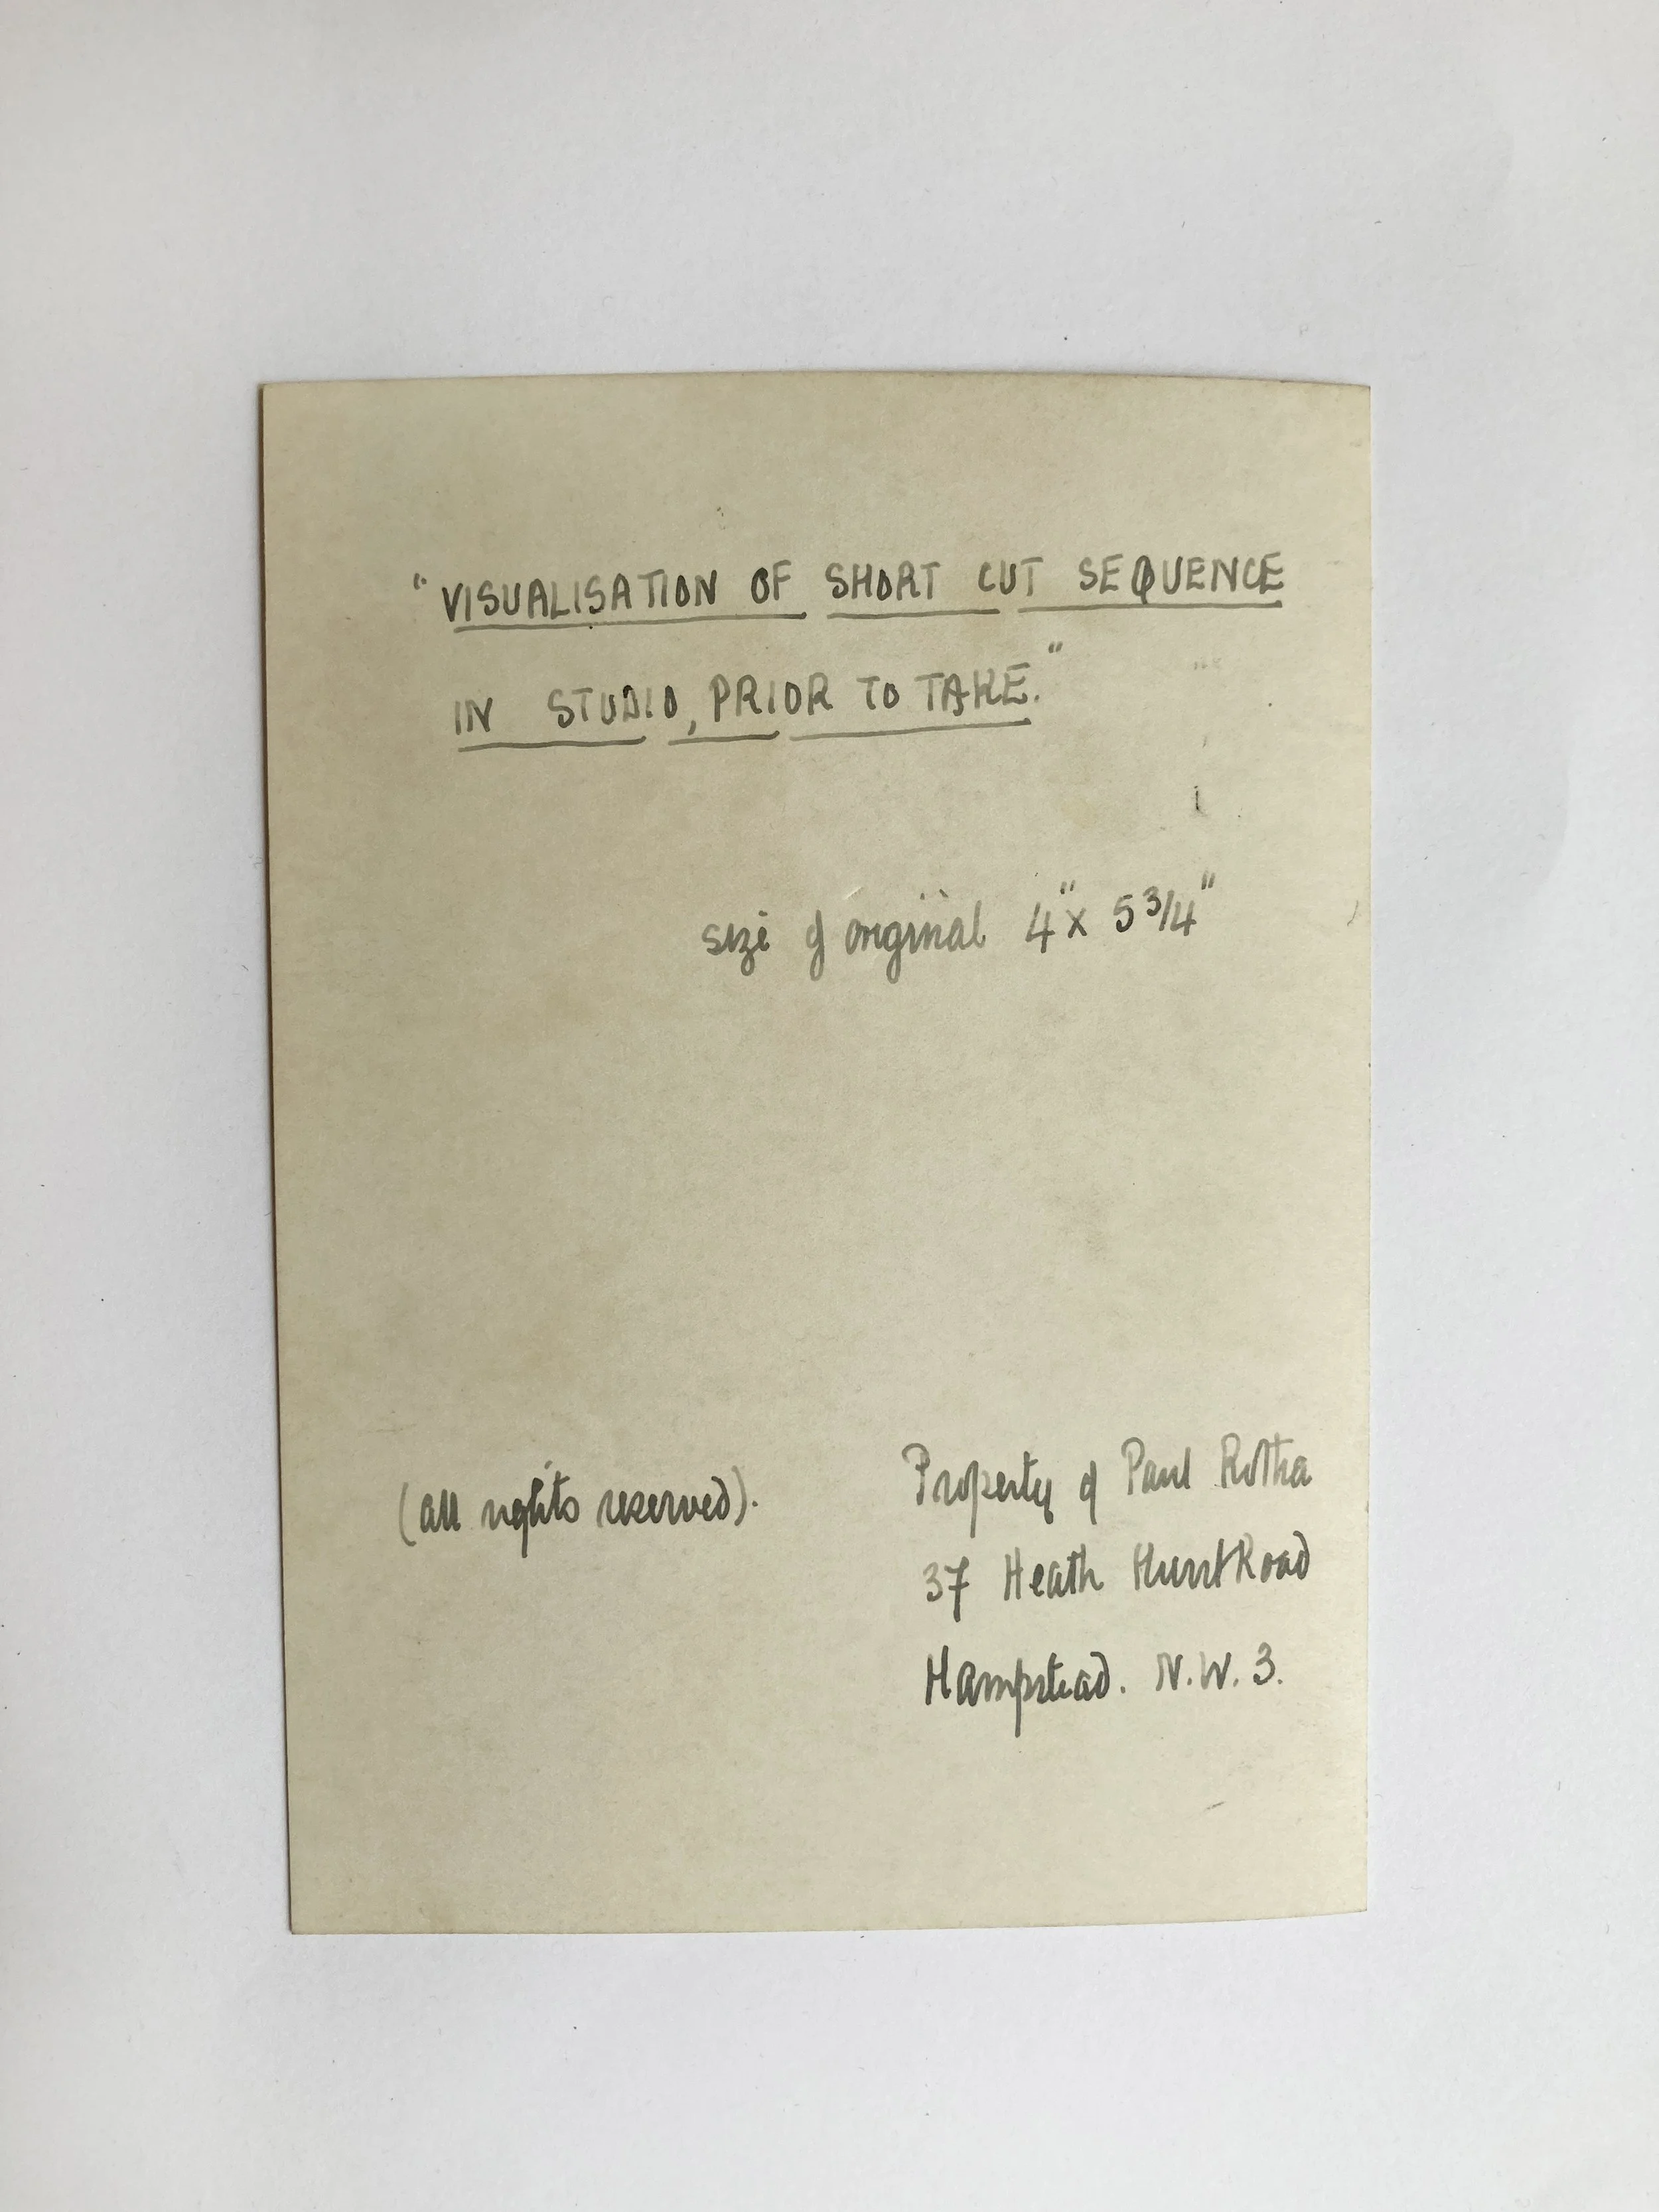 "VISUALISATION OF SHORT CUT SEQUENCE
IN STUDIO, PRIOR TO TAKE."
size of original 4" x 5 3/4"
(all rights reserved).
Property of Paul Rotha
37 Heath Hurst Road
Hampstead. N.W.3.